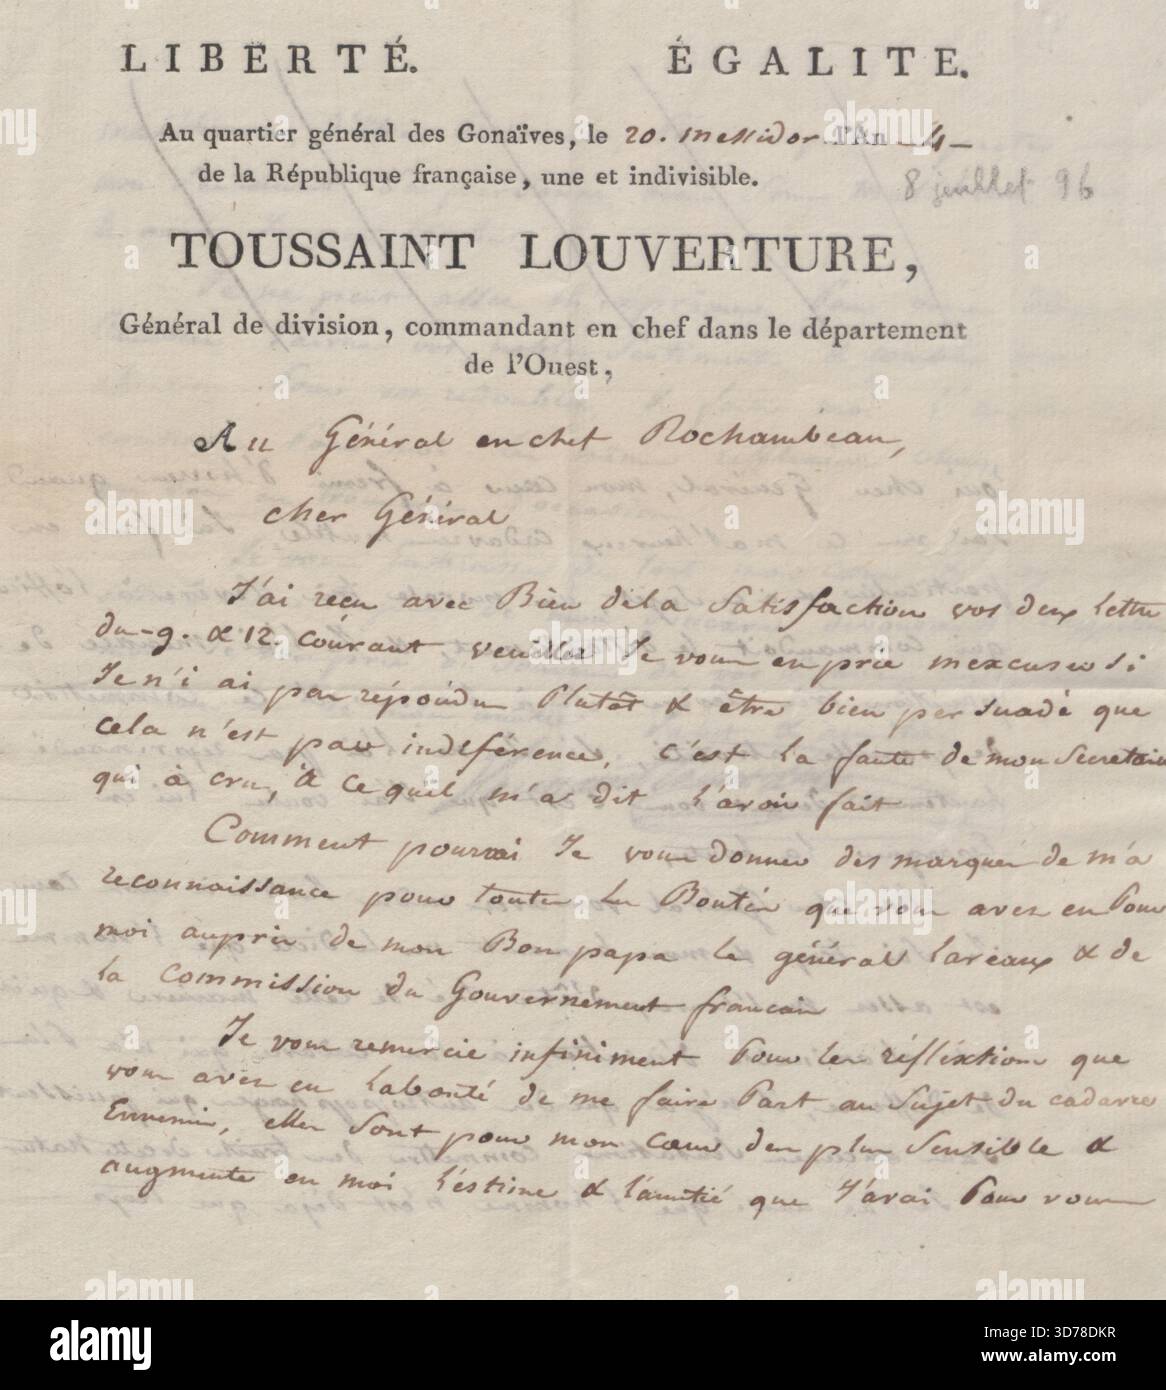 LIBERTÉ. ÉGALITE.
Au quartier général des Gonaïves, le 20. messidor l'An 4
de la République française, une et indivisible.
8 juillet 96
TOUSSAINT LOUVERTURE,
Général de division, commandant en chef dans le département
de l'Ouest,
Au Général en chef Rochambeau,
cher Général
J'ai reçu avec Bien dela Satisfaction vos deux lettre
du 9. & 12. courant veuillez Je vous en prie mexcuser Si
Je n'i ai pas répondu Plutôt & être bien persuadé que
cela n'est pas indiférence, c'est la faute de mon Secretaire
qui à cru, à ce quil m'a dit l'avoir fait
Comment pourrai Je vous donner des marques de m'a
reconnaissance pour toutes les Bontés que vous avez eu Pour
moi auprès de mon Bon papa le général laveaux & de
la Commission du Gouvernement francais
Je vous remercie infiniment Pour les réflextions que
vous avez eu labonté de me faire Part au Sujet du cadavre
Ennemis, elles Sont pour mon cœur des plus Sensible &
augmente en moi l'estime & l'amitié que J'avai Pour vous
alamy
Image ID: 3D78DKR
www.alamy.com